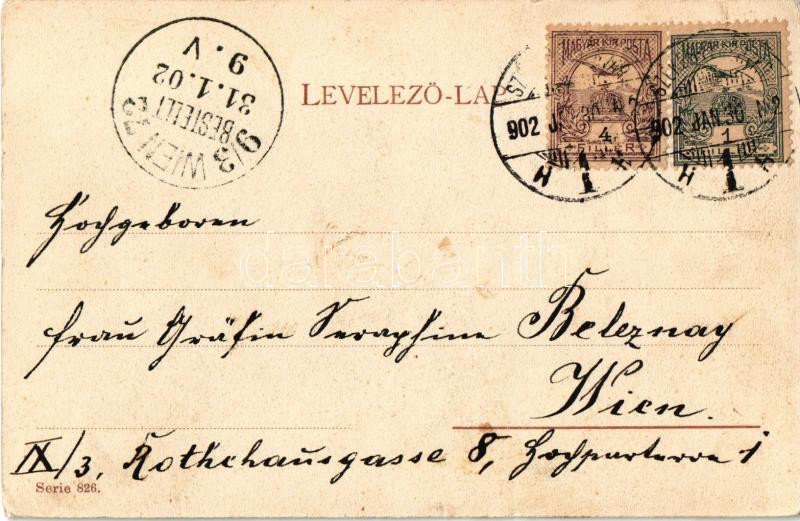 9/3 WIEN 72
BESTELLT
31.1.02
9.V
LEVELEZŐ-LAP
MAGYAR KIR. POSTA
4
FILLÉR
MAGYAR KIR. POSTA
1
902 JAN 30
902 JAN 30
1
1
Hochgeboren
Frau Gräfin Seraphine Beleznay
Wien.
IX/3, Rothehausgasse 8, Hochparterre 1
Serie 826.
darabanth